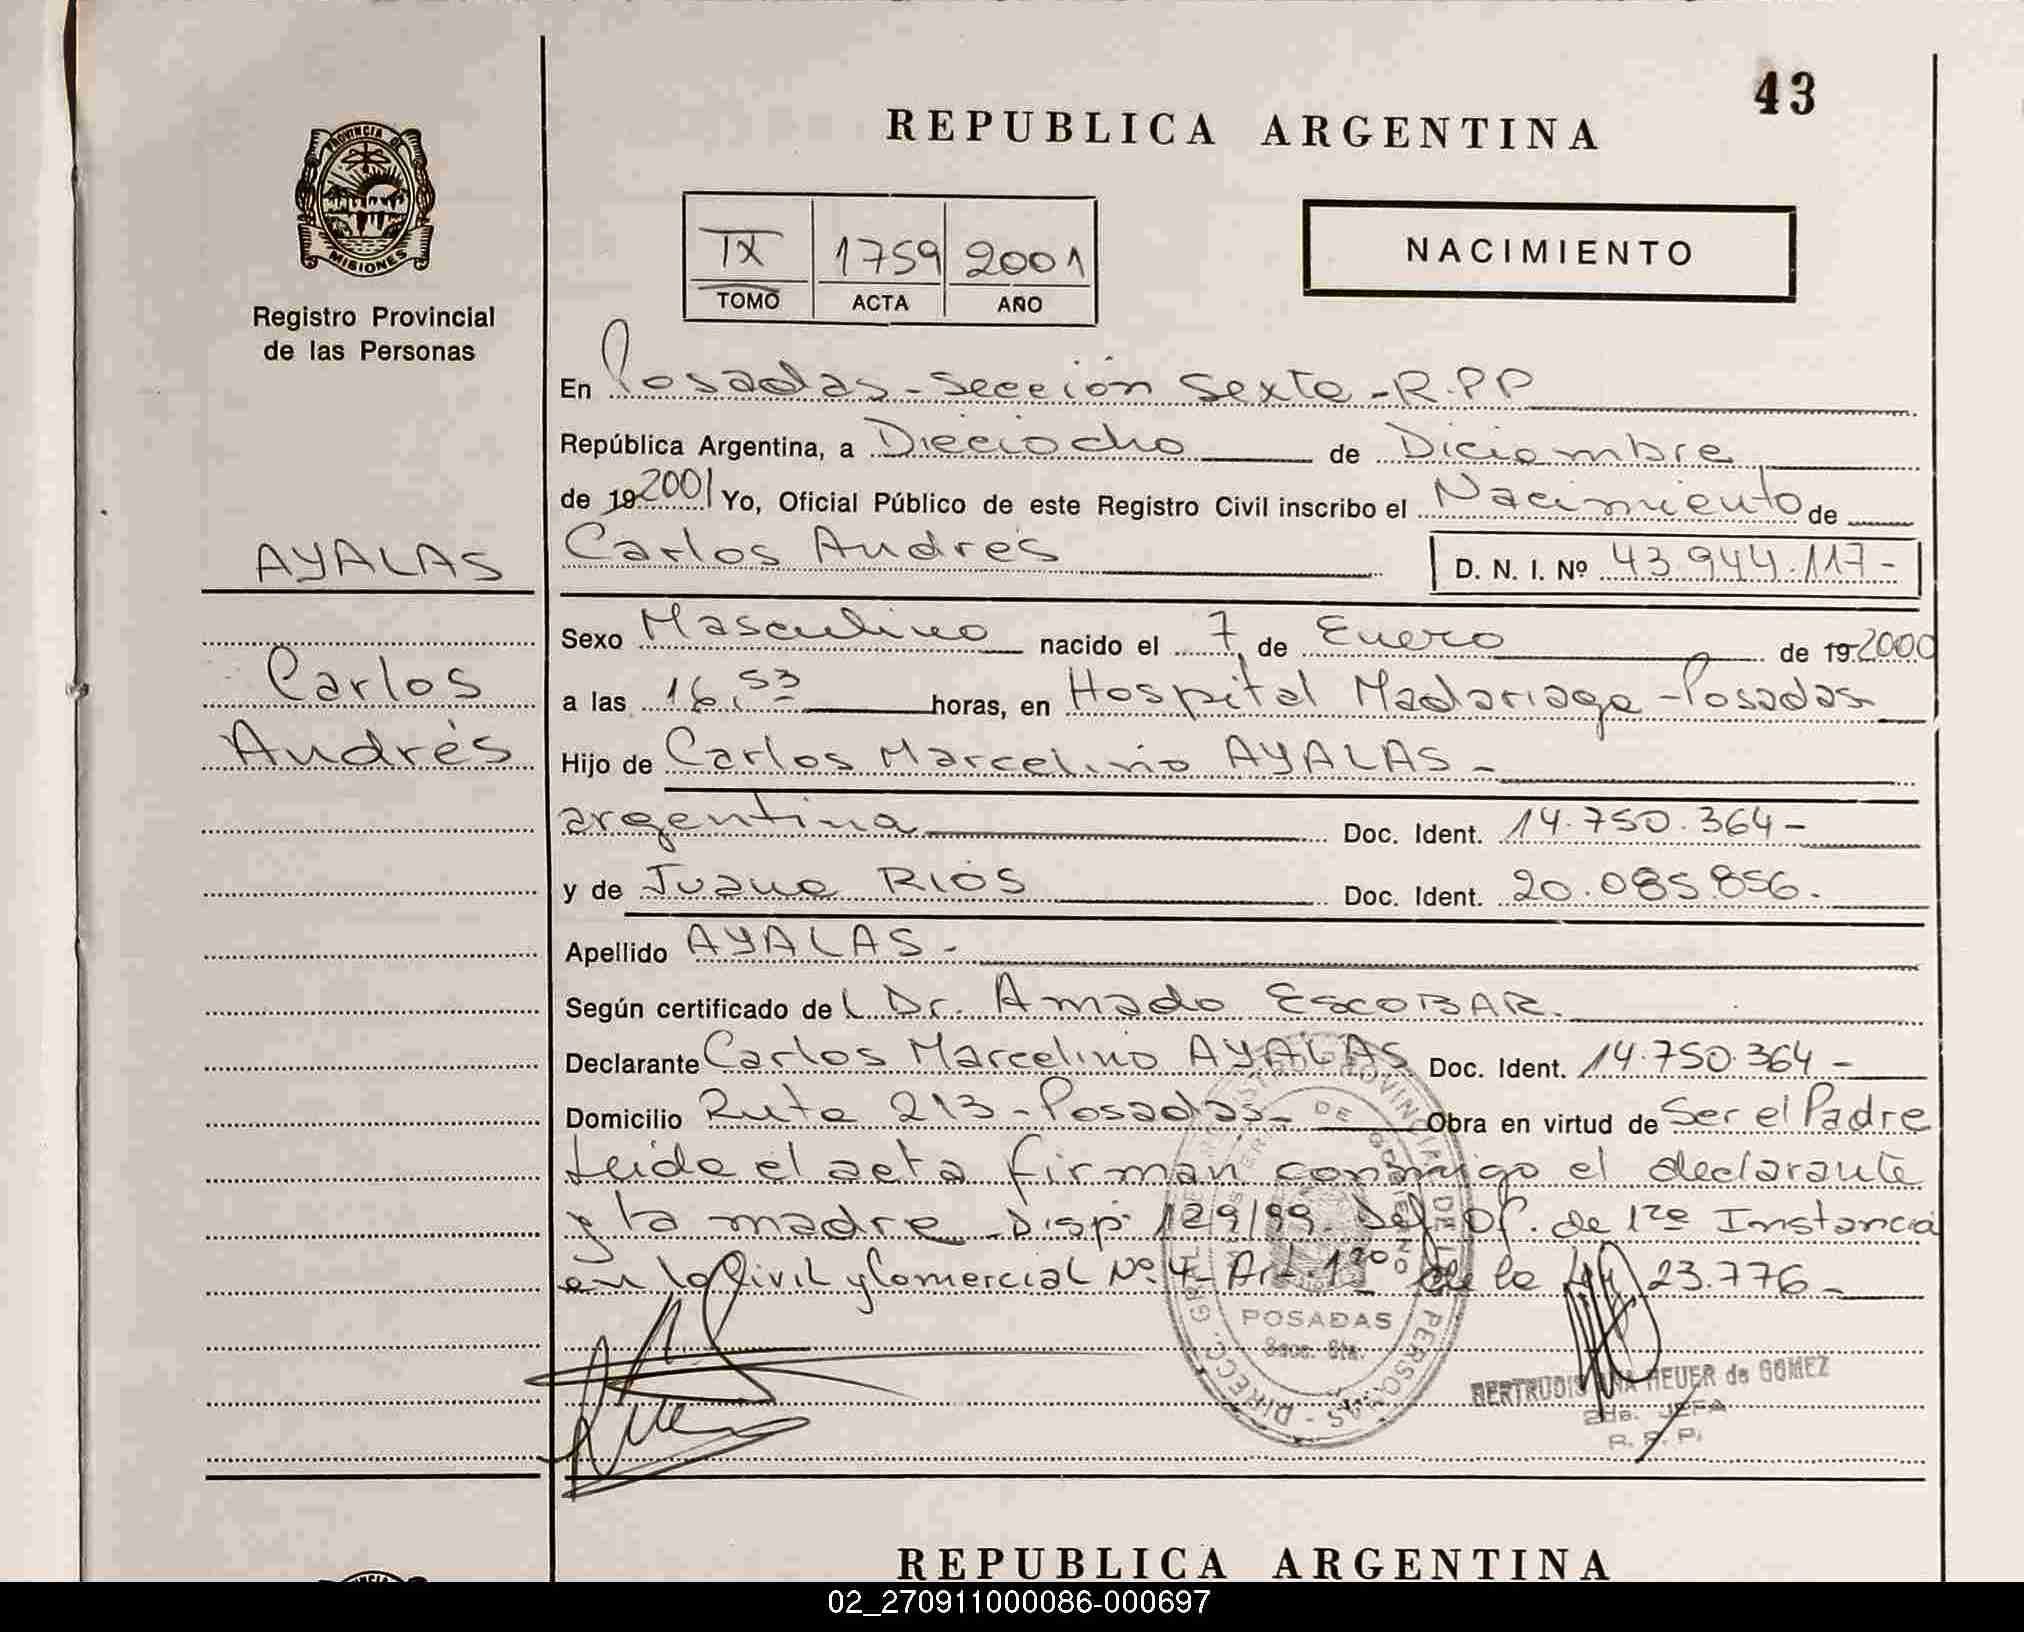 43
REPUBLICA ARGENTINA
PROVINCIA DE
MISIONES
Registro Provincial
de las Personas
IX 1759 2001
TOMO ACTA AÑO
NACIMIENTO
En Posadas - Sección Sexta - R.P.P
República Argentina, a Dieciocho de Diciembre
de 19 2001 Yo, Oficial Público de este Registro Civil inscribo el Nacimiento de
AYALAS
Carlos Andrés
D. N. I. Nº 43.944.117-
Sexo Masculino nacido el 7 de Enero de 19 2000
Carlos
Andrés
a las 16,53 horas, en Hospital Madariaga - Posadas
Hijo de Carlos Marcelino AYALAS -
argentina Doc. Ident. 14.750.364-
y de Juana RIOS Doc. Ident. 20.085.856.
Apellido AYALAS -
Según certificado del Dr. Amado ESCOBAR.
Declarante Carlos Marcelino AYALAS Doc. Ident. 14.750.364-
Domicilio Ruta 213 - Posadas - Obra en virtud de Ser el Padre
Leída el acta firman conmigo el declarante
y la madre. Disp. 129/99. Def. Of. de 1ra Instancia
en lo Civil y Comercial Nº 4 - Art. 1º de la Ley 23.776 -
POSADAS
Secc. 6ta.
GERTRUDIS ANA HEUER de GOMEZ
2da. JEFA
R. P. P.
REPUBLICA ARGENTINA
02_270911000086-000697